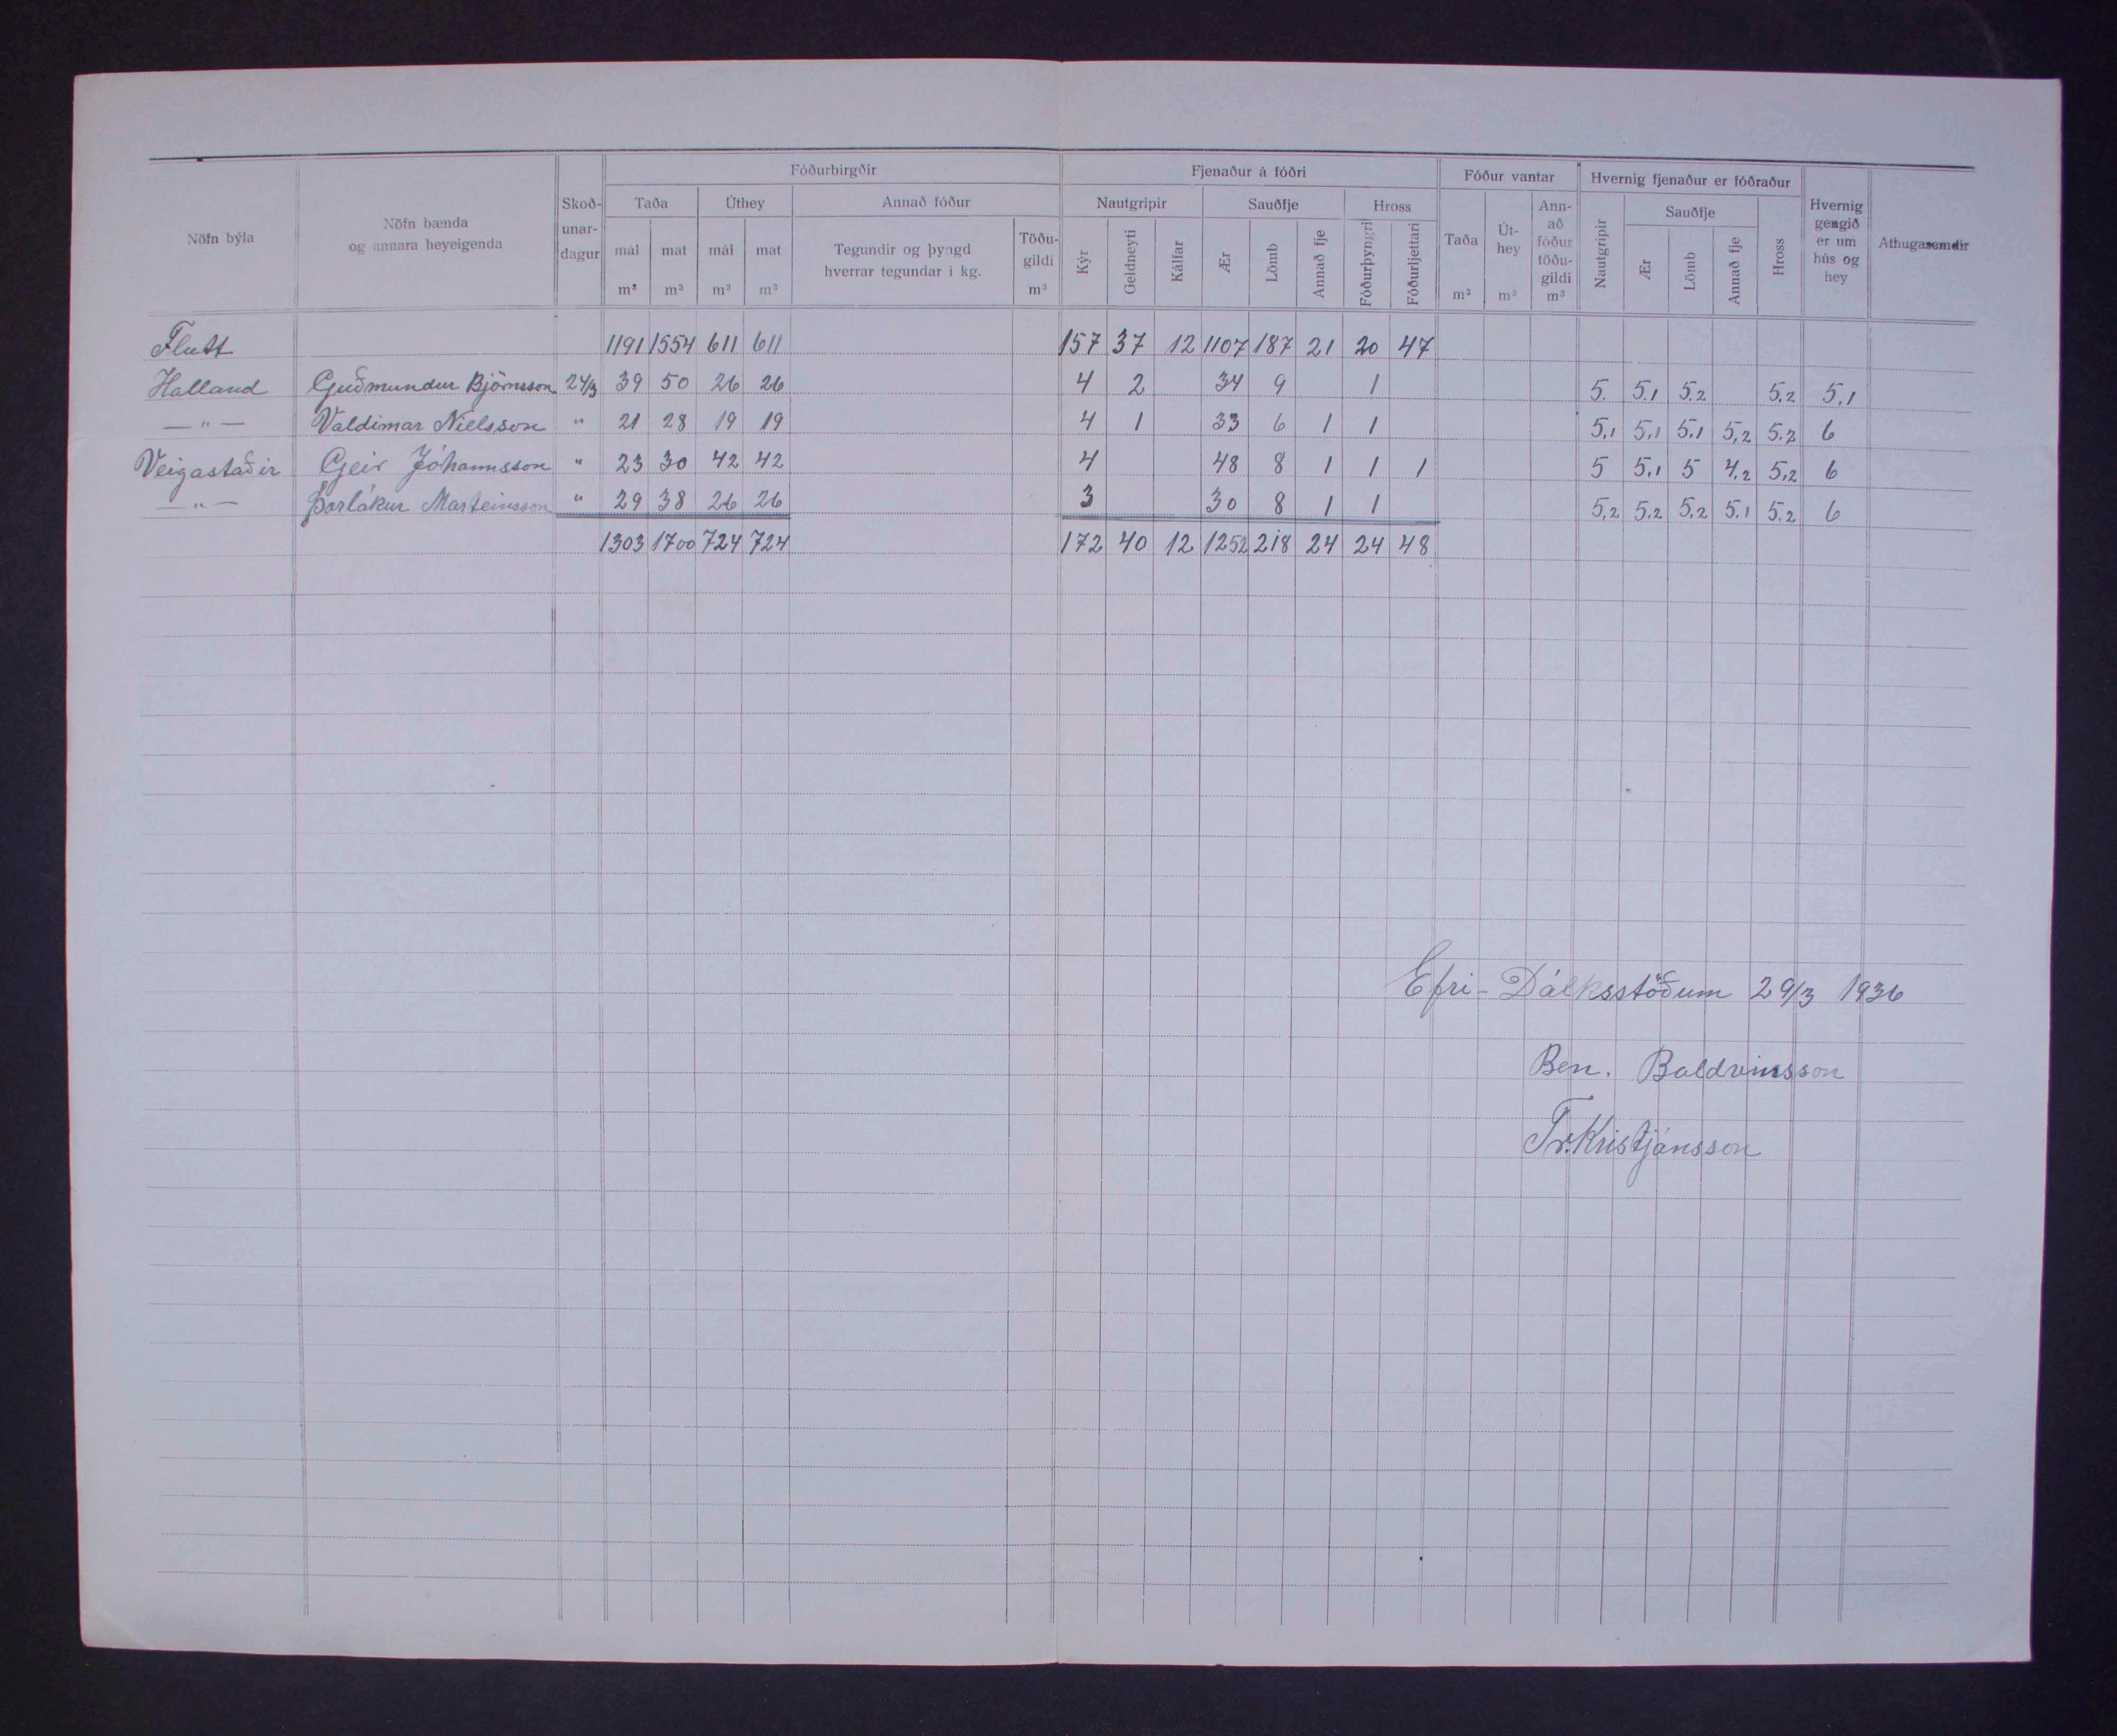 Fóðurbirgðir Fjenaður á fóðri Fóður vantar Hvernig fjenaður er fóðraður
Nöfn býla
Nöfn bænda
og annara heyeigenda
Skoð-
unar-
dagur
Taða Úthey Annað fóður
mál mat mál mat
m³ m³ m³ m³
Tegundir og þyngd
hverrar tegundar í kg.
Töðu-
gildi
m³
Nautgripir Sauðfje Hross
Kýr Geldneyti Kálfar Ær Lömb Annað fje Fóðurþyngri Fóðurljettari
Taða
m³
Út-
hey
m³
Ann-
að
fóður
töðu-
gildi
m³
Nautgripir
Sauðfje
Ær Lömb Annað fje
Hross
Hvernig
gengið
er um
hús og
hey
Athugasemdir
Flutt 1191 1554 611 611 157 37 12 1107 187 21 20 47
Halland Guðmundur Björnsson 24/3 39 50 26 26 4 2 34 9 1 5. 5.1 5.2 5,2 5,1
— " — Valdimar Nielsson " 21 28 19 19 4 1 33 6 1 1 5,1 5,1 5.1 5,2 5.2 6
Veigastaðir Geir Jóhannsson " 23 30 42 42 4 48 8 1 1 1 5 5,1 5 4,2 5,2 6
— " — Þorlákur Marteinsson " 29 38 26 26 3 30 8 1 1 5,2 5.2 5,2 5.1 5.2 6
1303 1700 724 724 172 40 12 1252 218 24 24 48
Efri-Dálksstöðum 29/3 1936
Ben. Baldvinsson
Tr. Kristjánsson